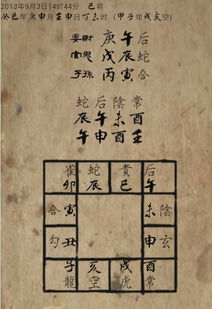 2013年9月3日14时44分 巳将
癸巳年庚申月壬申日丁未时 (甲子旬戌亥空)
妻財 庚午 后
官鬼 戊辰 蛇
子孫 丙寅 合
蛇后陰常
辰午未酉
午申酉壬
雀蛇貴后
卯辰巳午
合寅 未陰
勾丑 申玄
子亥戌酉
龍空虎常